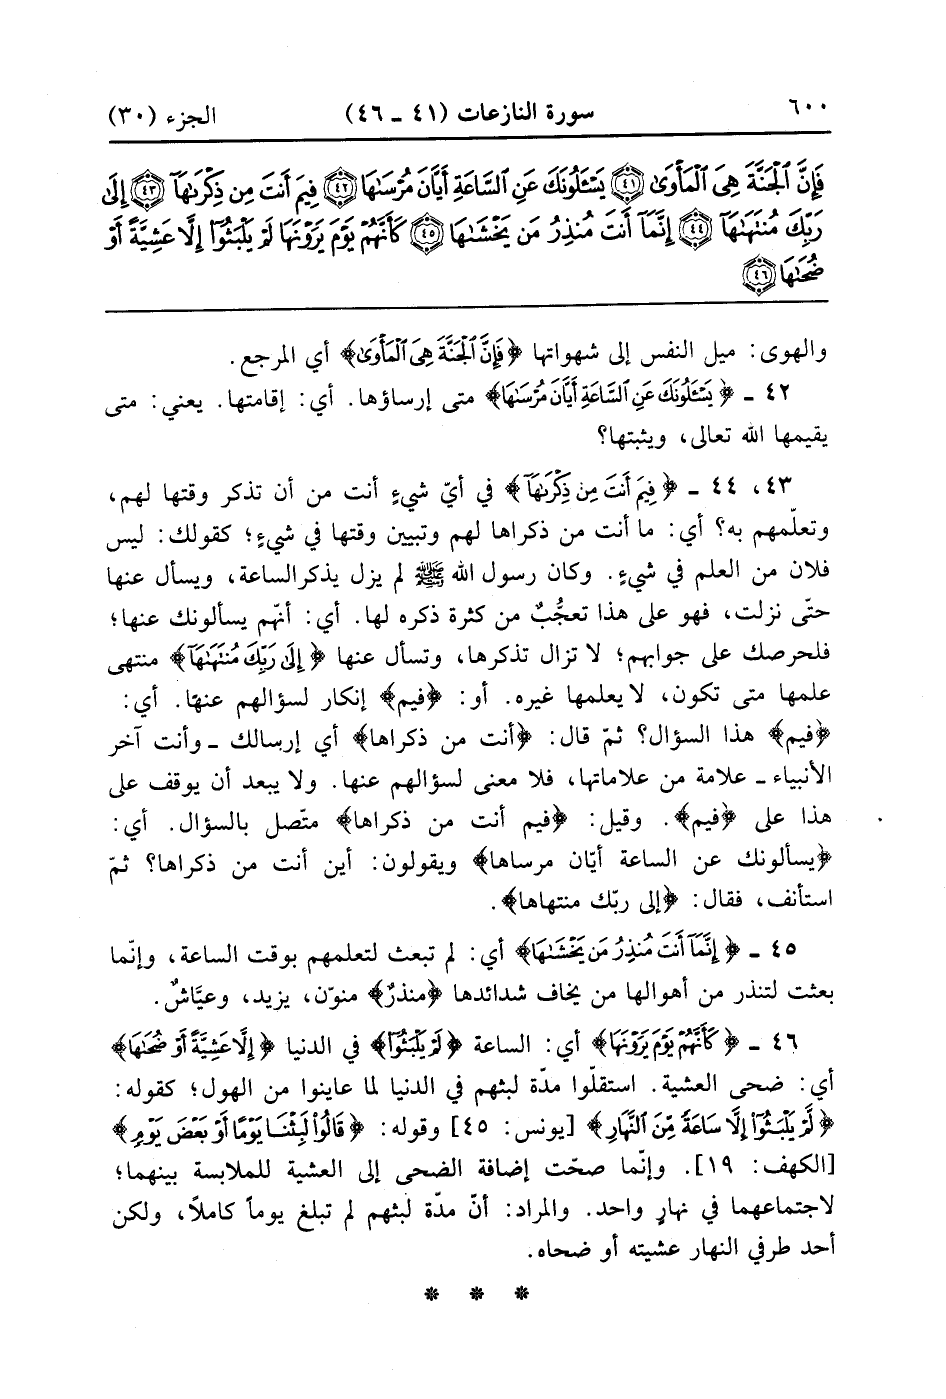 ٦٠٠
سورة النازعات (٤١ ـ ٤٦)
الجزء (٣٠)
فَإِنَّ ٱلْجَنَّةَ هِىَ ٱلْمَأْوَىٰ ٤١ يَسْـَٔلُونَكَ عَنِ ٱلسَّاعَةِ أَيَّانَ مُرْسَىٰهَا ٤٢ فِيمَ أَنتَ مِن ذِكْرَىٰهَآ ٤٣ إِلَىٰ
رَبِّكَ مُنتَهَىٰهَآ ٤٤ إِنَّمَآ أَنتَ مُنذِرُ مَن يَخْشَىٰهَا ٤٥ كَأَنَّهُمْ يَوْمَ يَرَوْنَهَا لَمْ يَلْبَثُوٓا۟ إِلَّا عَشِيَّةً أَوْ
ضُحَىٰهَا ٤٦
والهوى: ميل النفس إلى شهواتها ﴿فَإِنَّ ٱلْجَنَّةَ هِىَ ٱلْمَأْوَىٰ﴾ أي المرجع.
٤٢ ـ ﴿يَسْـَٔلُونَكَ عَنِ ٱلسَّاعَةِ أَيَّانَ مُرْسَىٰهَا﴾ متى إرساؤها. أي: إقامتها. يعني: متى
يقيمها الله تعالى، ويثبتها؟
٤٣، ٤٤ ـ ﴿فِيمَ أَنتَ مِن ذِكْرَىٰهَآ﴾ في أيّ شيءٍ أنت من أن تذكر وقتها لهم،
وتعلّمهم به؟ أي: ما أنت من ذكراها لهم وتبيين وقتها في شيءٍ؛ كقولك: ليس
فلان من العلم في شيءٍ. وكان رسول الله ﷺ لم يزل يذكر الساعة، ويسأل عنها
حتّى نزلت، فهو على هذا تعجُّبٌ من كثرة ذكره لها. أي: أنّهم يسألونك عنها؛
فلحرصك على جوابهم؛ لا تزال تذكرها، وتسأل عنها ﴿إِلَىٰ رَبِّكَ مُنتَهَىٰهَآ﴾ منتهى
علمها متى تكون، لا يعلمها غيره. أو: ﴿فيم﴾ إنكار لسؤالهم عنها. أي:
﴿فيم﴾ هذا السؤال؟ ثمّ قال: ﴿أنت من ذكراها﴾ أي إرسالك ـ وأنت آخر
الأنبياء ـ علامة من علاماتها، فلا معنى لسؤالهم عنها. ولا يبعد أن يوقف على
هذا على ﴿فيم﴾. وقيل: ﴿فيم أنت من ذكراها﴾ متّصل بالسؤال. أي:
﴿يسألونك عن الساعة أيّان مرساها﴾ ويقولون: أين أنت من ذكراها؟ ثمّ
استأنف، فقال: ﴿إلى ربّك منتهاها﴾.
٤٥ ـ ﴿إِنَّمَآ أَنتَ مُنذِرُ مَن يَخْشَىٰهَا﴾ أي: لم تبعث لتعلمهم بوقت الساعة، وإنّما
بعثت لتنذر من أهوالها من يخاف شدائدها ﴿منذرٌ﴾ منوّن، يزيد، وعيَّاشٌ.
٤٦ ـ ﴿كَأَنَّهُمْ يَوْمَ يَرَوْنَهَا﴾ أي: الساعة ﴿لَمْ يَلْبَثُوٓا۟﴾ في الدنيا ﴿إِلَّا عَشِيَّةً أَوْ ضُحَىٰهَا﴾
أي: ضحى العشية. استقلّوا مدّة لبثهم في الدنيا لما عاينوا من الهول؛ كقوله:
﴿لَّمْ يَلْبَثُوٓا۟ إِلَّا سَاعَةً مِّنَ ٱلنَّهَارِ﴾ [يونس: ٤٥] وقوله: ﴿قَالُوا۟ لَبِثْنَا يَوْمًا أَوْ بَعْضَ يَوْمٍ﴾
[الكهف: ١٩]. وإنّما صحّت إضافة الضحى إلى العشية للملابسة بينهما؛
لاجتماعهما في نهارٍ واحد. والمراد: أنّ مدّة لبثهم لم تبلغ يوماً كاملاً، ولكن
أحد طرفي النهار عشيته أو ضحاه.
* * *